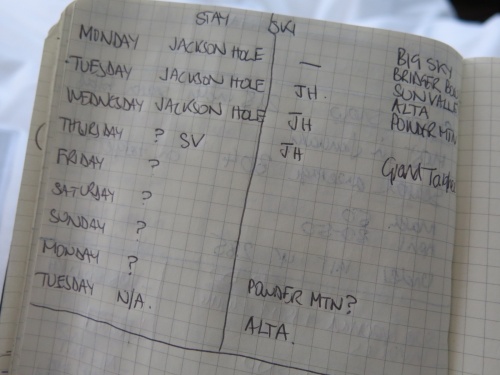 STAY SKI
MONDAY JACKSON HOLE — BIG SKY
TUESDAY JACKSON HOLE JH. BRIDGER
WEDNESDAY JACKSON HOLE JH SUN VALLEY
THURSDAY ? SV JH ALTA
FRIDAY ? POWDER MTN
SATURDAY ? Grand Targhee
SUNDAY ?
MONDAY ? POWDER MTN?
TUESDAY N/A. ALTA.